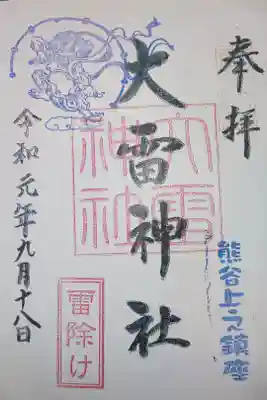 奉拝
熊谷上之鎮座
大雷神社
大雷
神社
雷除け
令和元年九月十八日